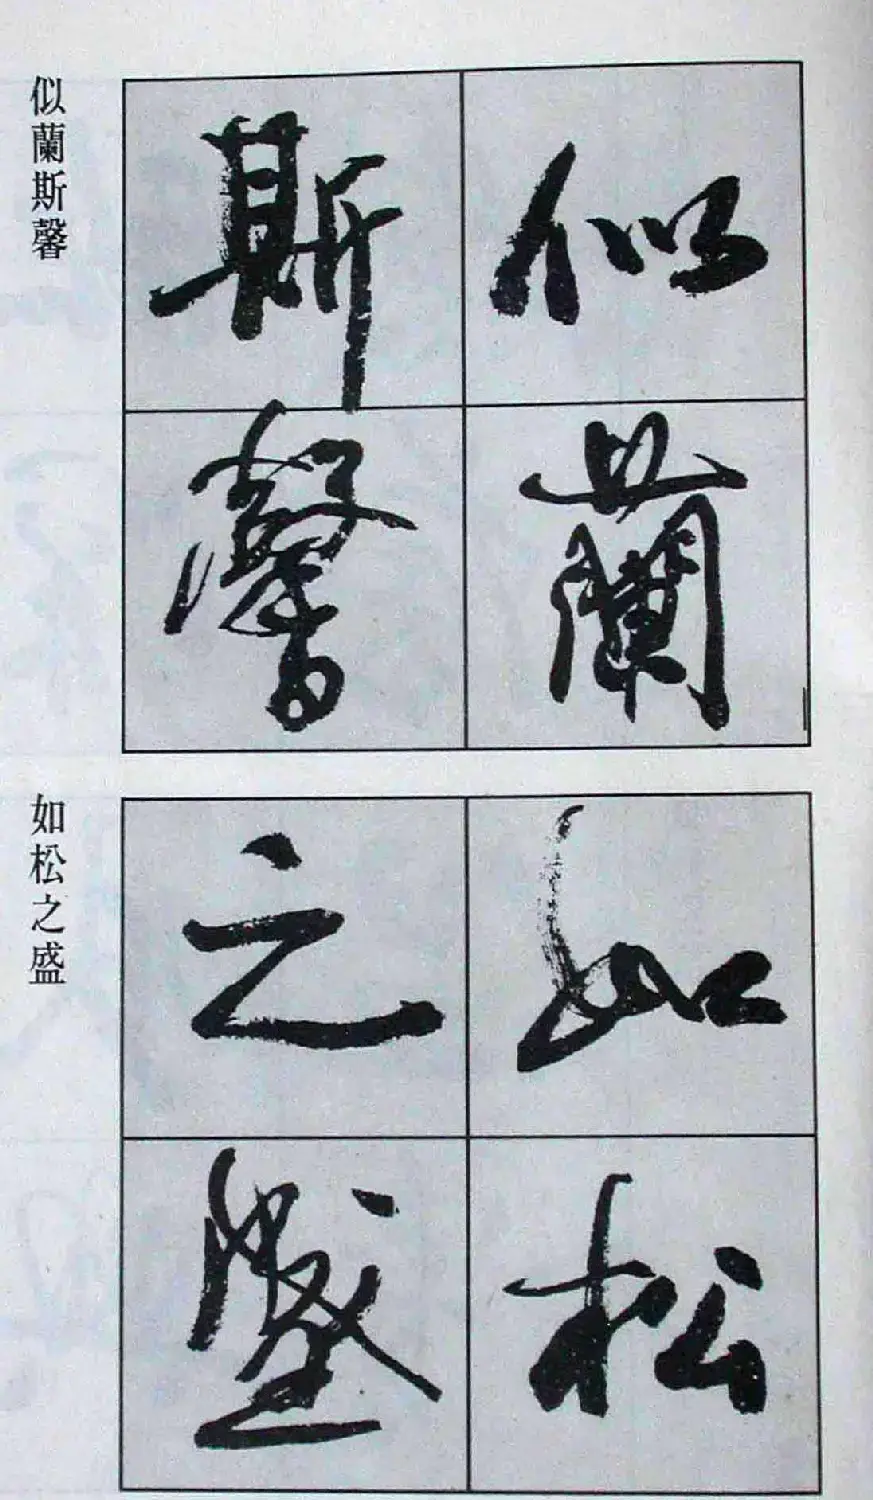 似蘭
斯馨
似蘭斯馨
如松
之盛
如松之盛